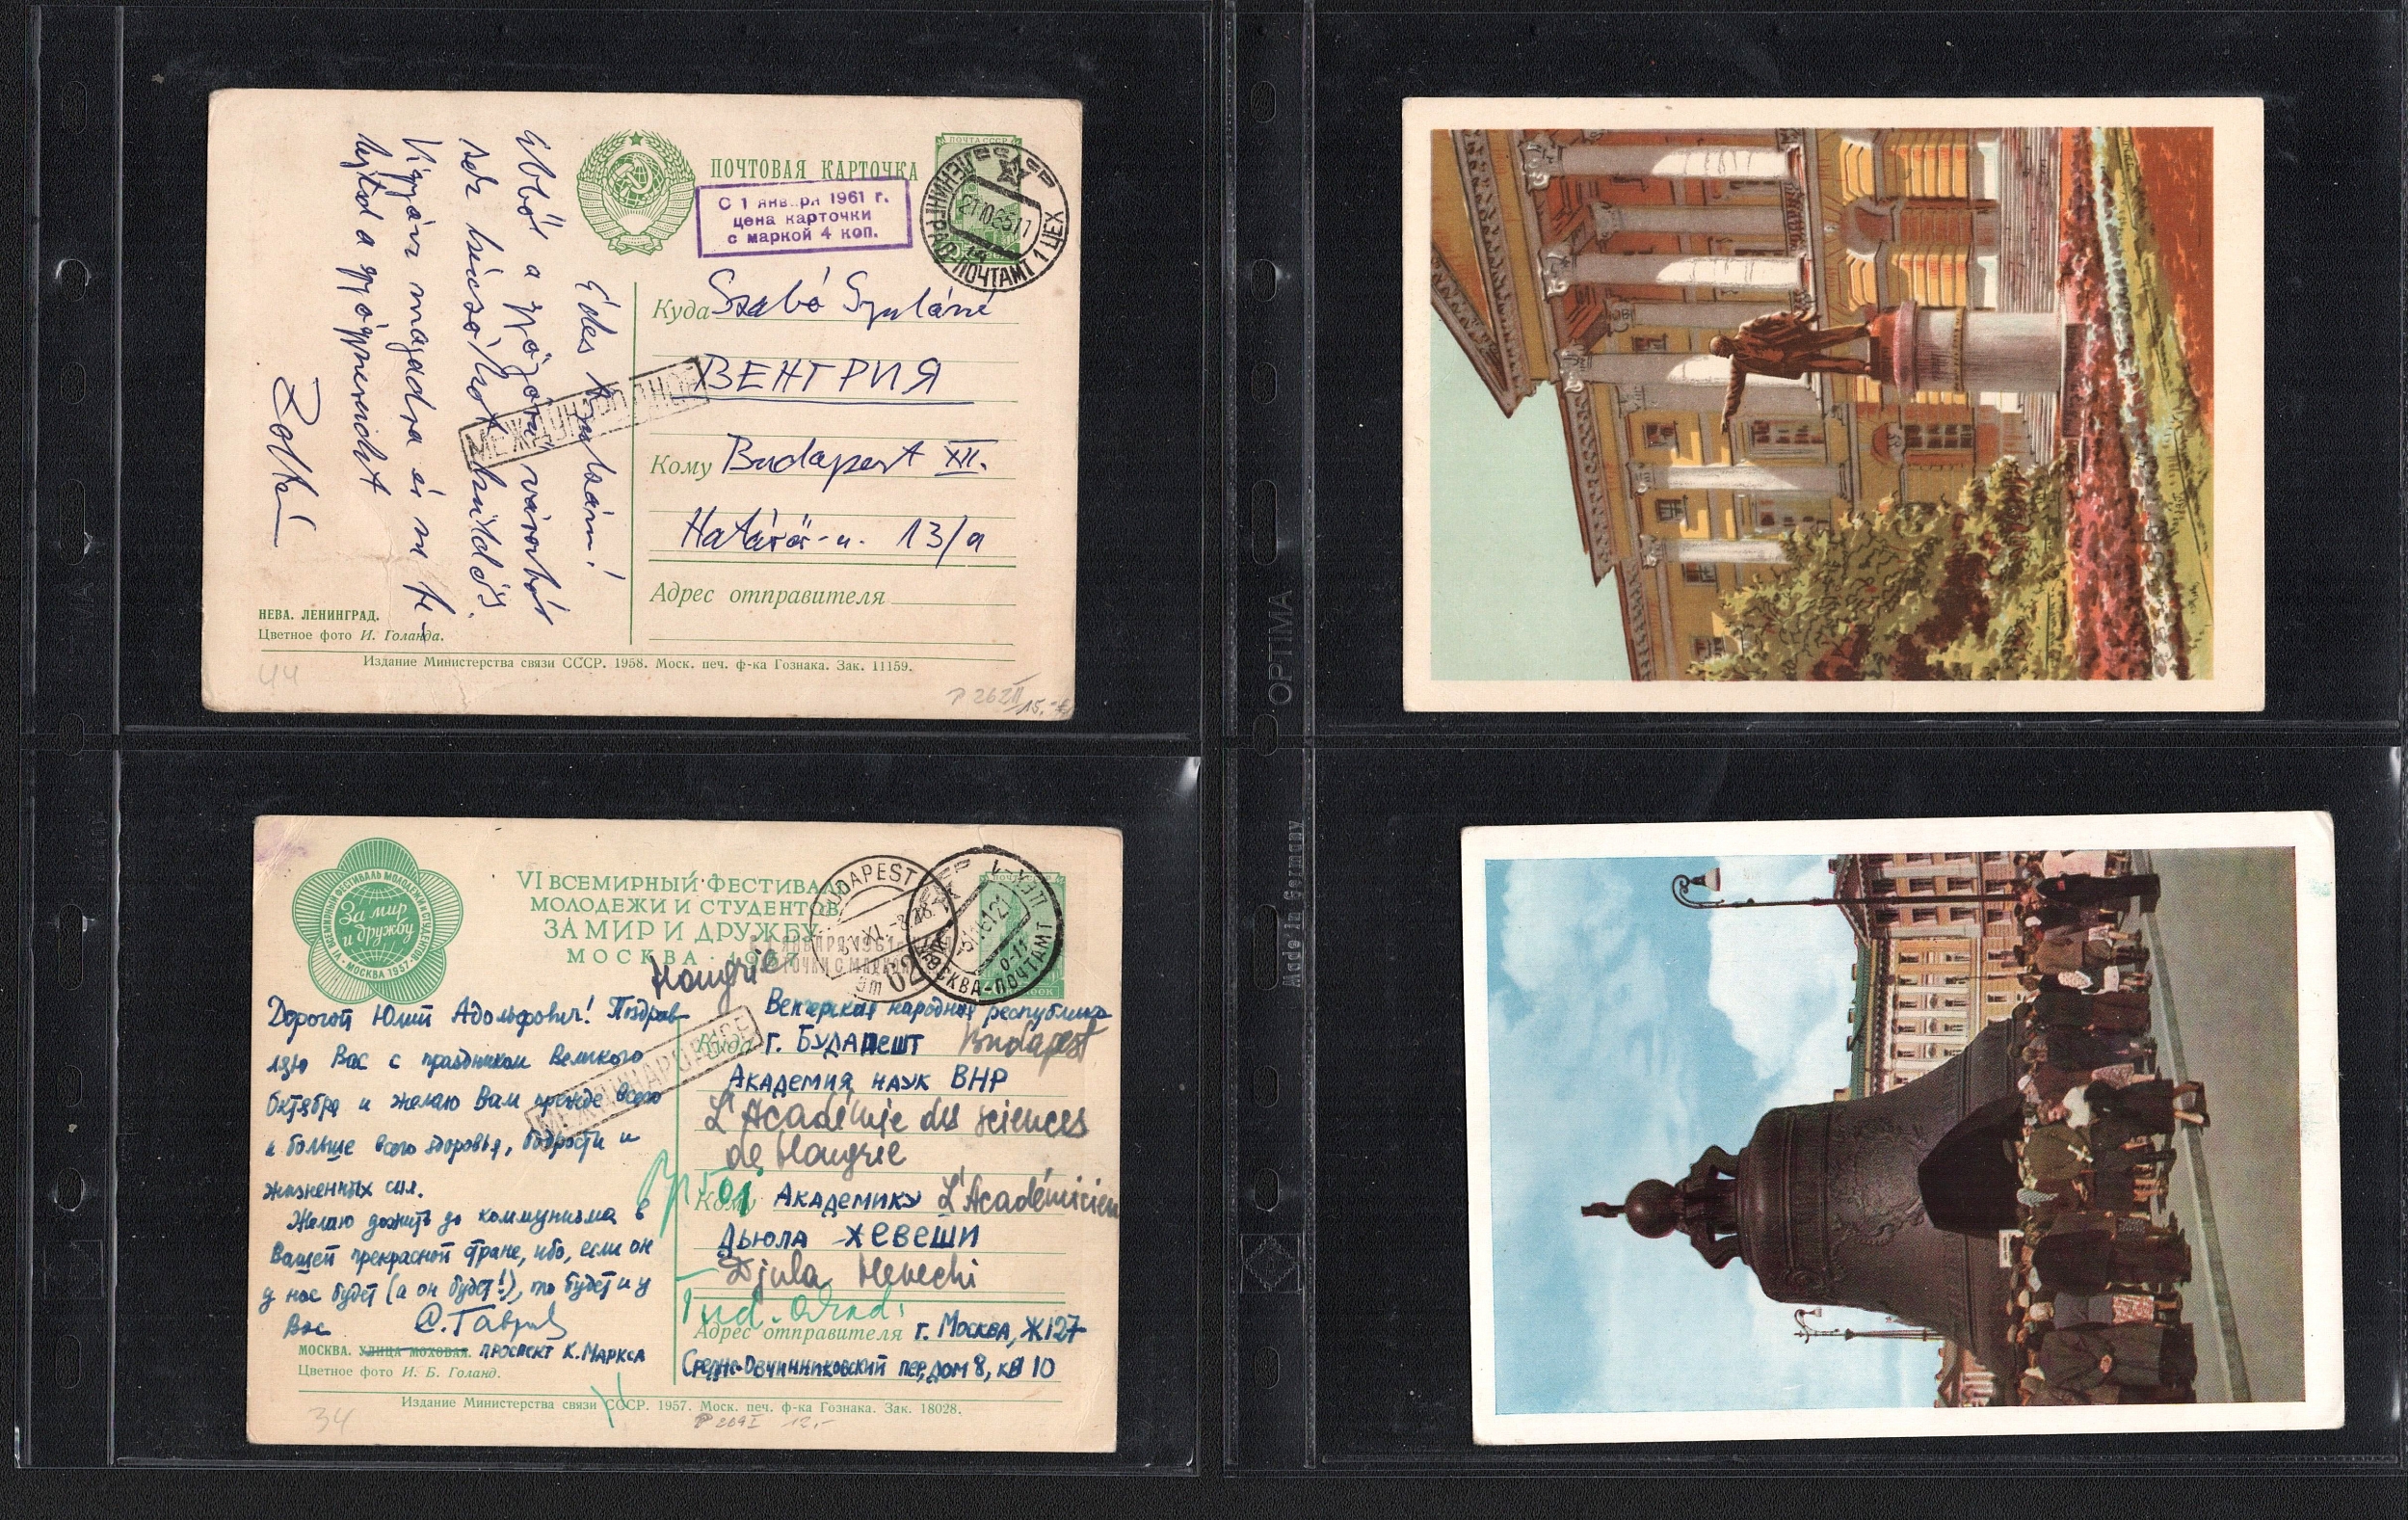 ПОЧТОВАЯ КАРТОЧКА
ПОЧТА СССР
С 1 января 1961 г.
цена карточки
с маркой 4 коп.
ЛЕНИНГРАД-ПОЧТАМТ 1 ЦЕХ
Édes
Ebből a
sok búcsúzót küldő
Vigyázz magadra és
Zoltán
МЕЖДУНАРОДНОЕ
Куда Szabó Gyuláné
ВЕНГРИЯ
Кому Budapest XII.
Határőr-u. 13/a
Адрес отправителя
НЕВА. ЛЕНИНГРАД.
Цветное фото И. Голанда.
Издание Министерства связи СССР. 1958. Моск. печ. ф-ка Гознака. Зак. 11159.
44
P 262 II
15.-
OPTIMA
Made in Germany
VI ВСЕМИРНЫЙ ФЕСТИВАЛЬ МОЛОДЕЖИ И СТУДЕНТОВ
За мир
и дружбу
МОСКВА 1957
VI ВСЕМИРНЫЙ ФЕСТИВАЛЬ
МОЛОДЕЖИ И СТУДЕНТОВ
ЗА МИР И ДРУЖБУ
МОСКВА · 1957
BUDAPEST
62
МОСКВА-ПОЧТАМТ
Hongrie
МЕЖДУНАРОДНОЕ
Дорогой Юлий Адольфович! Поздрав-
ляю Вас с праздником Великого
Октября и желаю Вам прежде всего
и больше всего здоровья, бодрости и
жизненных сил.
Желаю дожить до коммунизма в
Вашей прекрасной стране, ибо, если он
у нас будет (а он будет!), то будет и у
Вас
Венгерская народная республика
Куда г. БУДАПЕШТ Budapest
АКАДЕМИЯ НАУК ВНР
L'Académie des sciences
de Hongrie
Кому АКАДЕМИКУ L'Académicien
ДЬЮЛА ХЕВЕШИ
Djula Hevechi
Адрес отправителя г. Москва, Ж127
Средне-Овчинниковский пер, дом 8, кв 10
МОСКВА. УЛИЦА МОХОВАЯ. ПРОСПЕКТ К. МАРКСА
Цветное фото И. Б. Голанд.
Издание Министерства связи СССР. 1957. Моск. печ. ф-ка Гознака. Зак. 18028.
34
P 209 I 12.-